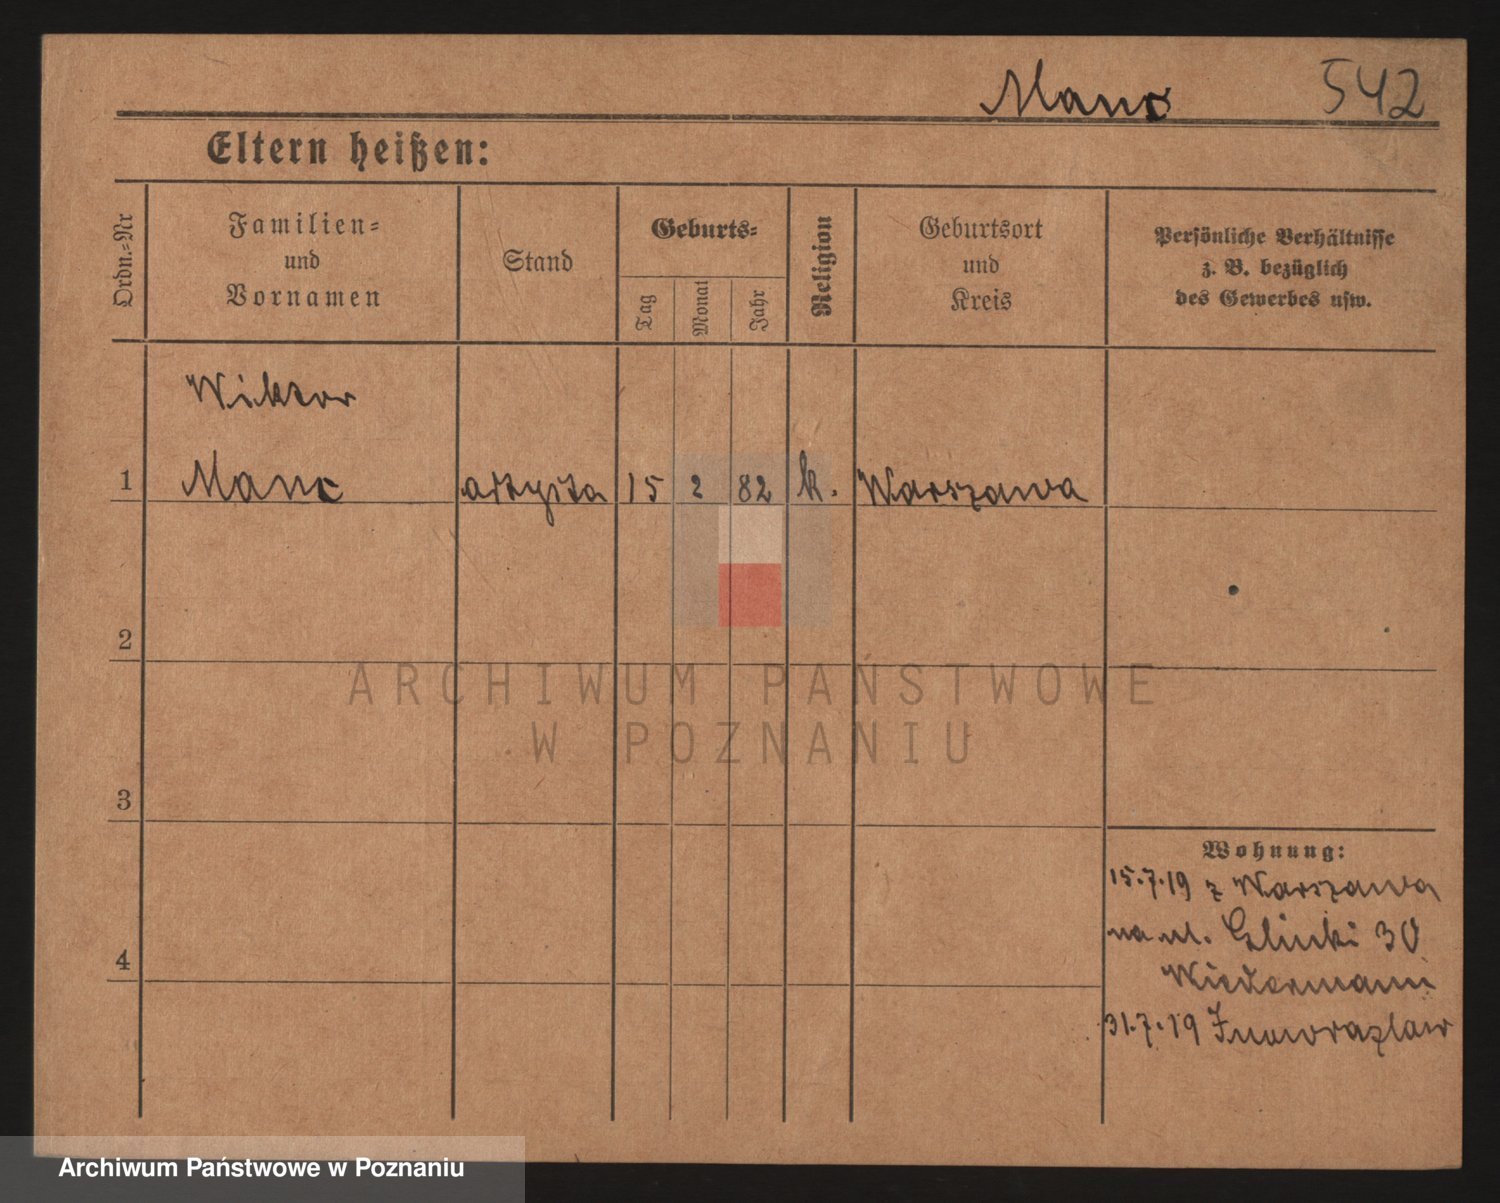 Manc 542
Eltern heißen:
Ordn.-Nr
Familien-
und
Vornamen
Stand
Geburts-
Tag
Monat
Jahr
Religion
Geburtsort
und
Kreis
Persönliche Verhältnisse
z. B. bezüglich
des Gewerbes usw.
Wiktor
1 Manc artysta 15 2 82 k. Warszawa
2
ARCHIWUM PAŃSTWOWE
W POZNANIU
3
Wohnung:
15.7.19 z Warszawa
na ul. Glinki 30
Wiedermann
4
31.7.19 Inowrazlaw
Archiwum Państwowe w Poznaniu